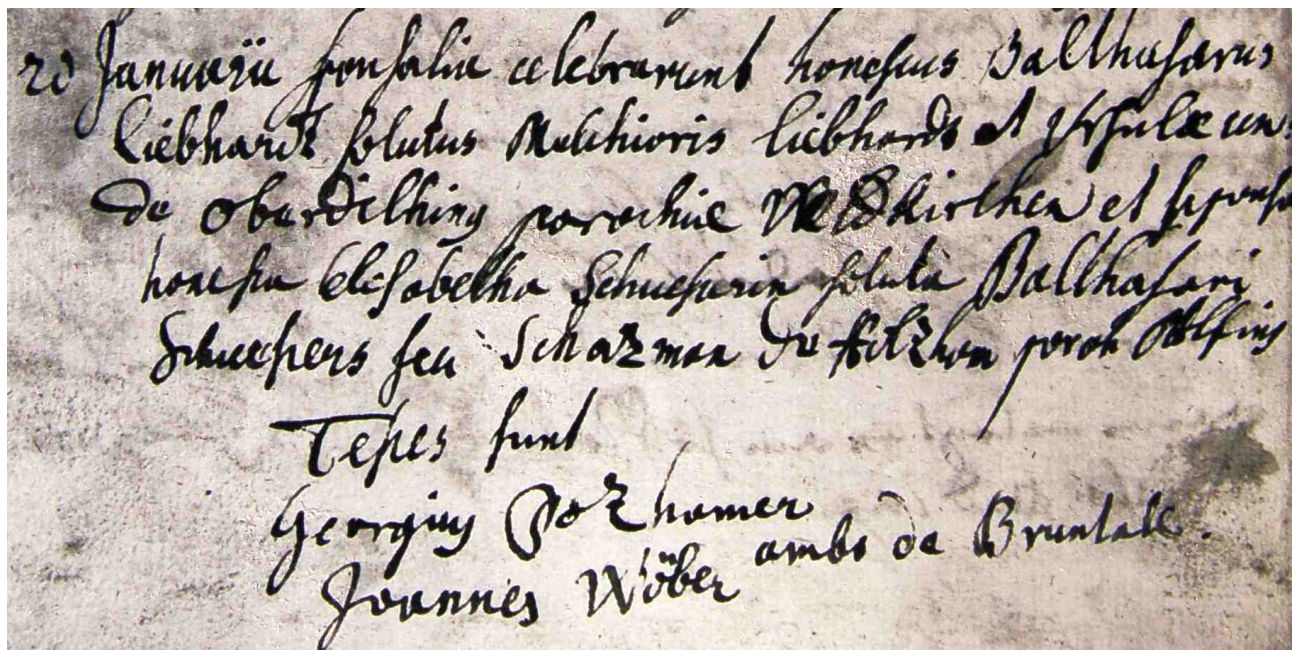 20 Januarii sponsalia celebrarunt honestus Balthasarus
Liebhardt solutus Melchioris Liebhardt et Ursulae
de Oberdilhing parochiae et sponsa
honesta Elisabetha Schuesterin soluta Balthasari
Schuesters seu Schazman de paroch
Testes sunt
Georgius Pozhamer
Joannes Wöber ambo de